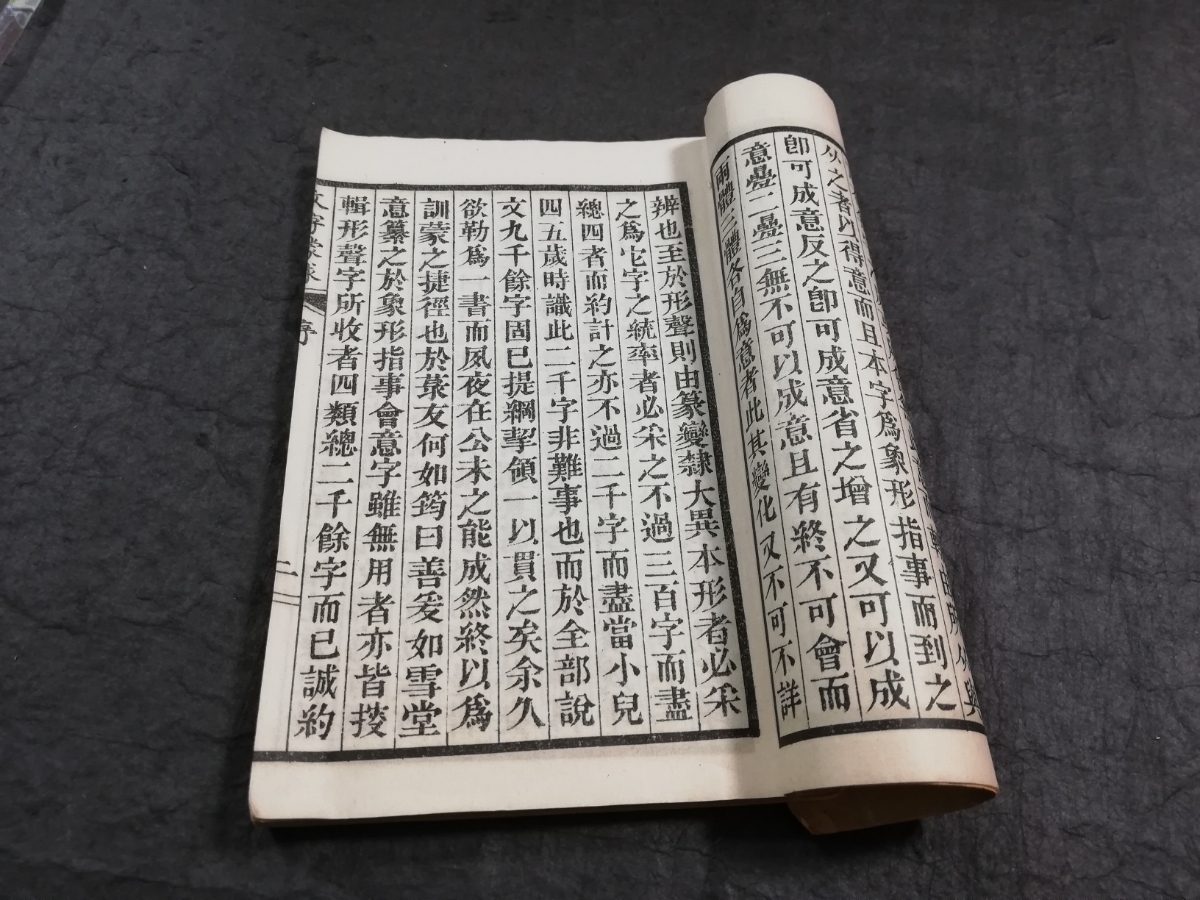 之者以得意而且本字爲象形指事而到之
卽可成意反之卽可成意省之增之又可以成
意疊二疊三無不可以成意且有終不可會而
兩體三體各自爲意者此其變化又不可不詳
辨也至於形聲則由篆變隸大異本形者必采
之爲它字之統率者必采之不過三百字而盡
總四者而約計之亦不過二千字而盡當小兒
四五歲時識此二千字非難事也而於全部說
文九千餘字固已提綱挈領一以貫之矣余久
欲勒爲一書而夙夜在公未之能成然終以爲
訓蒙之捷徑也於菉友何如筠曰善爰如雪堂
意纂之於象形指事會意字雖無用者亦皆搜
輯形聲字所收者四類總二千餘字而已誠約
文字蒙求 序 二